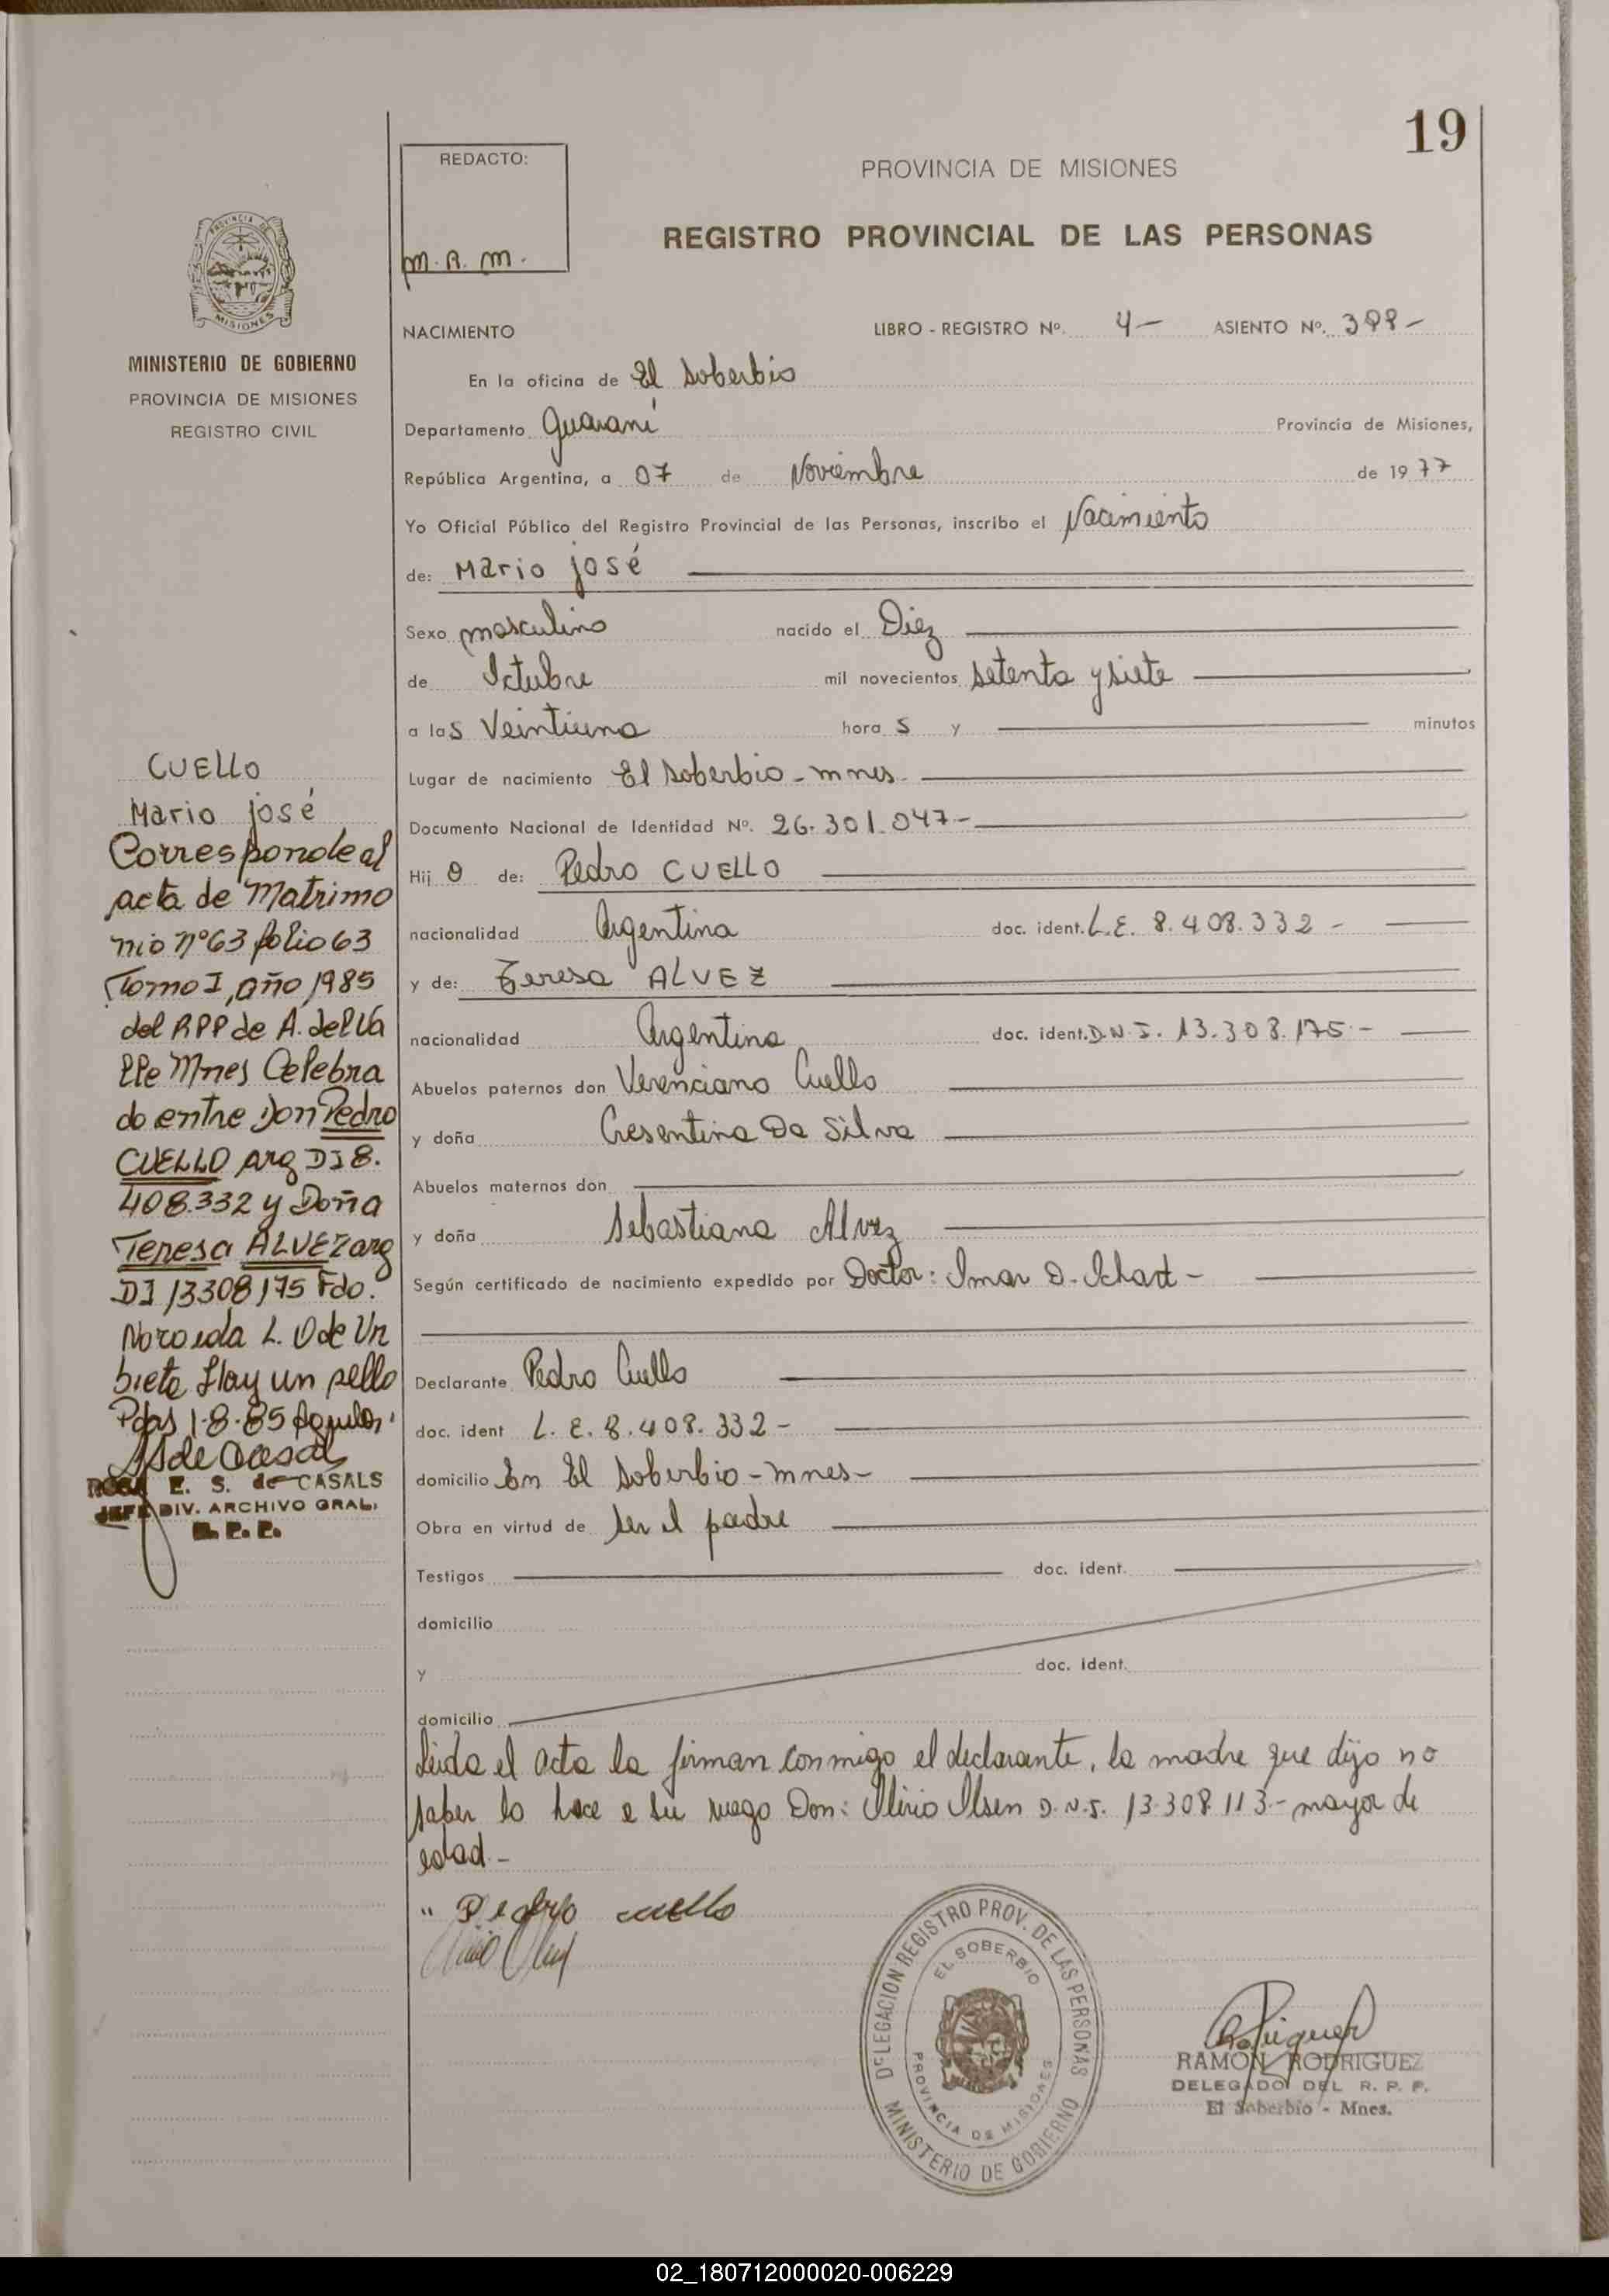 19
REDACTO:
M. R. M.
PROVINCIA DE MISIONES
REGISTRO PROVINCIAL DE LAS PERSONAS
PROVINCIA DE
MISIONES
MINISTERIO DE GOBIERNO
PROVINCIA DE MISIONES
REGISTRO CIVIL
NACIMIENTO LIBRO - REGISTRO Nº. 4- ASIENTO Nº. 399-
En la oficina de El Soberbio
Departamento Guaraní Provincia de Misiones,
República Argentina, a 07 de Noviembre de 1977
Yo Oficial Público del Registro Provincial de las Personas, inscribo el Nacimiento
de: Mario José
Sexo masculino nacido el Diez
de Octubre mil novecientos setenta y siete
a las Veintiuna hora s y minutos
Lugar de nacimiento El Soberbio - mnes.
Documento Nacional de Identidad Nº. 26.301.047-
Hij o de: Pedro CUELLO
nacionalidad Argentina doc. ident. L.E. 8.408.332 -
y de: Teresa ALVEZ
nacionalidad Argentina doc. ident. D.N.I. 13.308.175.-
Abuelos paternos don Verenciano Cuello
y doña Cresentina Da Silva
Abuelos maternos don
y doña Sebastiana Alvez
Según certificado de nacimiento expedido por Doctor: Imar D.
Declarante Pedro Cuello
doc. ident L. E. 8.408.332-
domicilio En El Soberbio - mnes-
Obra en virtud de ser el padre
Testigos doc. ident.
domicilio
y doc. ident.
domicilio
Leida el acta la firman conmigo el declarante, la madre que dijo no
saber lo hace a su ruego Don: Olirio Olsen D.N.I. 13.308.113.- mayor de
edad.-
" Pedro cuello
CUELLO
Mario José
Corresponde al
acta de Matrimo
nio nº63 folio 63
Tomo I, año 1985
del RPP de A. del Va
lle Mnes Celebra
do entre Don Pedro
CUELLO arg DI 8.
408.332 y Doña
Teresa ALVEZ arg
DI 13308175 Fdo.
L. O de Ur
bieta Hay un sello
Pdas 1-8-85
ROSA E. S. de CASALS
JEFE DIV. ARCHIVO GRAL.
R. P. P.
DELEGACION REGISTRO PROV. DE LAS PERSONAS
EL SOBERBIO
PROVINCIA DE MISIONES
MINISTERIO DE GOBIERNO
RAMON RODRIGUEZ
DELEGADO DEL R. P. P.
El Soberbio - Mnes.
02_180712000020-006229